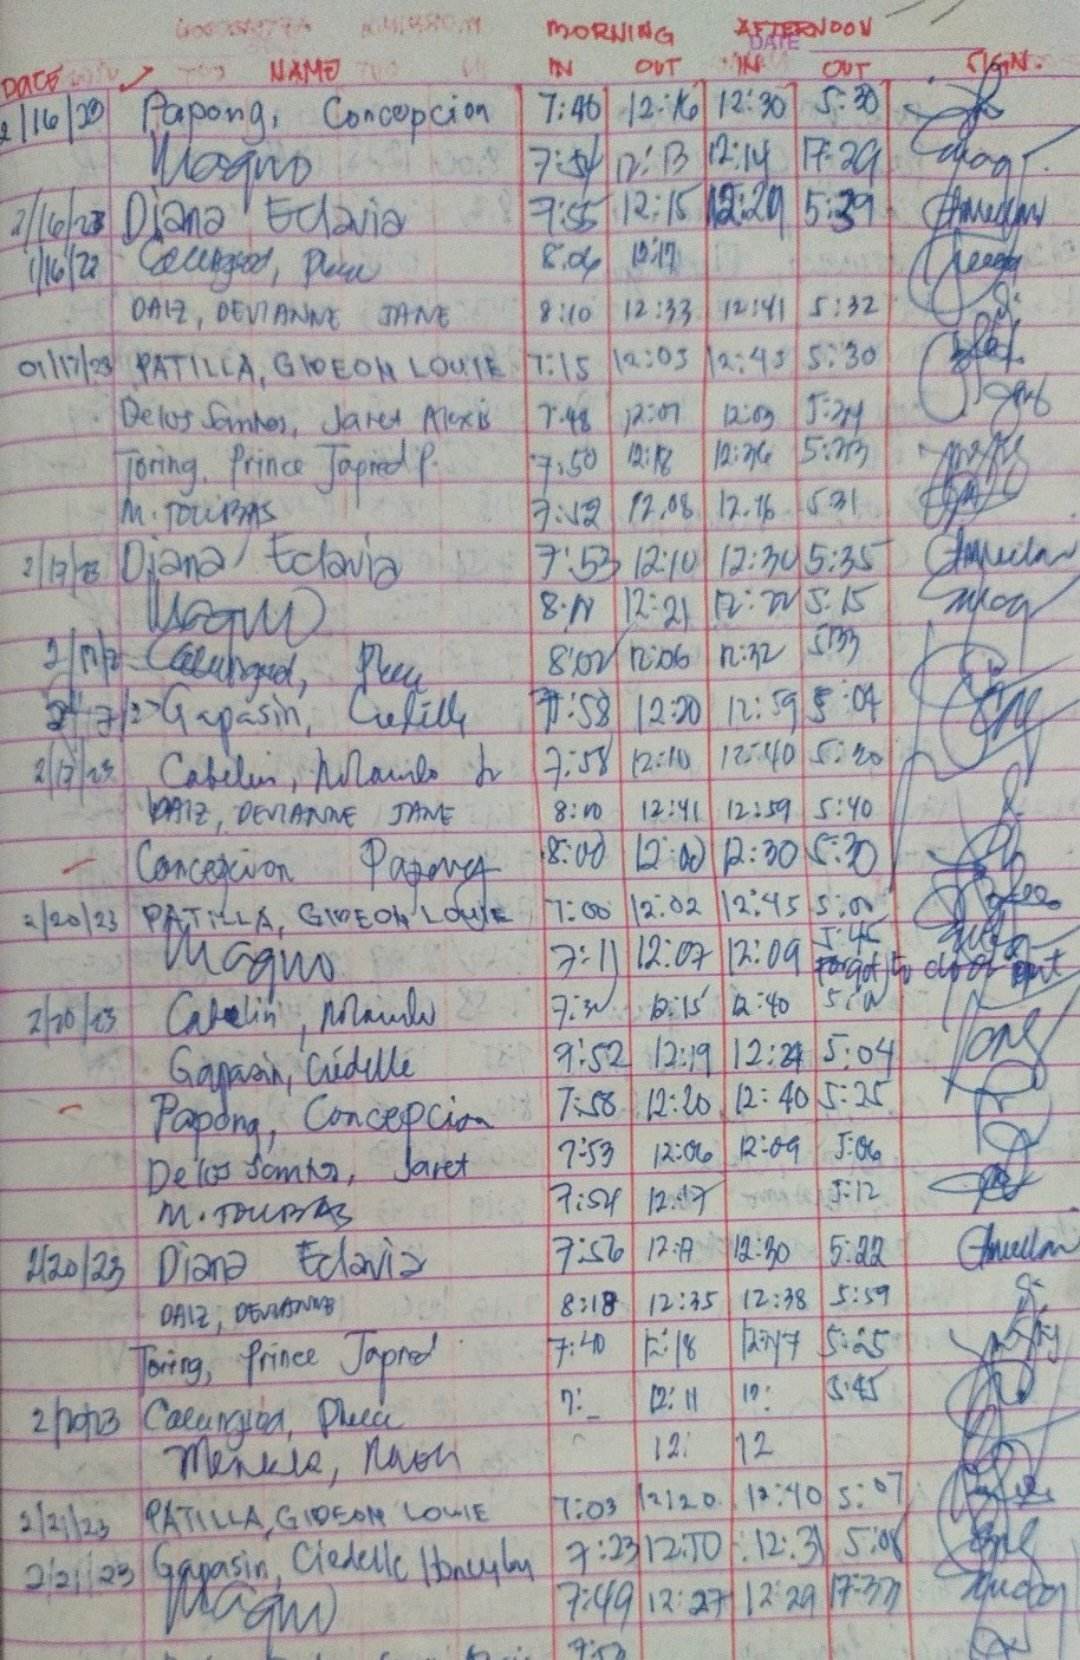 MORNING AFTERNOON
DATE
DATE NAME IN OUT IN OUT SIGN.
2/16/23 Papong, Concepcion 7:46 12:16 12:30 5:30
Magno 7:54 12:13 12:14 17:29
2/16/23 Diana Eclavia 7:55 12:15 12:29 5:39
1/16/22 8:06 12:17
DAIZ, DEVIANNE JANE 8:10 12:33 12:41 5:32
01/17/23 PATILLA, GIDEON LOUIE 7:15 12:03 12:45 5:30
Delos Santos, Jaret Alexis 7:48 12:07 12:09 5:24
Toring, Prince Japred P. 7:50 12:18 12:26 5:33
M. TOUBAS 7:52 12.08 12.16 5:31
2/17/23 Diana Eclavia 7:53 12:10 12:30 5:35
Magno 12:21 12:22 5:15
8:02 12:06 12:32 5:33
Gapasin, Ciedelle 7:58 12:20 12:59 5:04
2/17/23 Cabelin, Rolando Jr 7:58 12:10 12:40 5:20
DAIZ, DEVIANNE JANE 8:00 12:41 12:59 5:40
Concepcion Papong 8:00 12:00 12:30 5:30
2/20/23 PATILLA, GIDEON LOUIE 7:00 12:02 12:45 5:00
Magno 7:11 12:07 12:09 5:45
forgot to out
2/20/23 Cabelin, Rolando 12:15 12:40
Gapasin, Ciedelle 7:52 12:19 12:24 5:04
Papong, Concepcion 7:58 12:20 12:40 5:25
Delos Santos, Jaret 7:53 12:06 12:09 5:06
M. TOUBAS 7:54 12:17 5:12
2/20/23 Diana Eclavia 7:56 12:17 12:30 5:22
DAIZ, DEVIANNE 8:18 12:35 12:38 5:59
Toring, Prince Japred 7:40 12:18 12:17 5:25
2/20/23 7:_ 12:11 12: 5:45
12: 12
2/21/23 PATILLA, GIDEON LOUIE 7:03 12:20 12:40 5:07
2/21/23 Gapasin, Ciedelle Honeylou 7:23 12:10 12:31 5:08
Magno 7:49 12:27 12:29 17:37
7:53